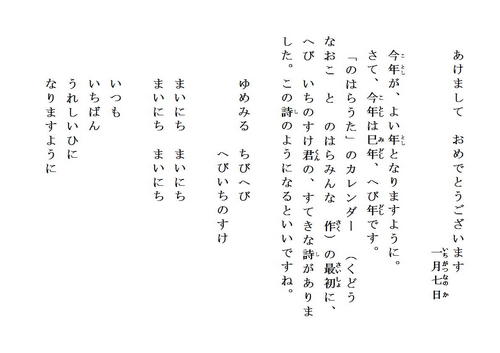 あけまして　おめでとうございます
一月七日
今年が、よい年となりますように。
さて、今年は巳年、へび年です。
「のはらうた」のカレンダー　（くどう
なおこ　と　のはらみんな　作）の最初に、
へび　いちのすけ君の、すてきな詩がありま
した。この詩のようになるといいですね。
ゆめみる　ちびへび
へびいちのすけ
まいにち　まいにち
まいにち　まいにち
いつも
いちばん
うれしいひに
なりますように